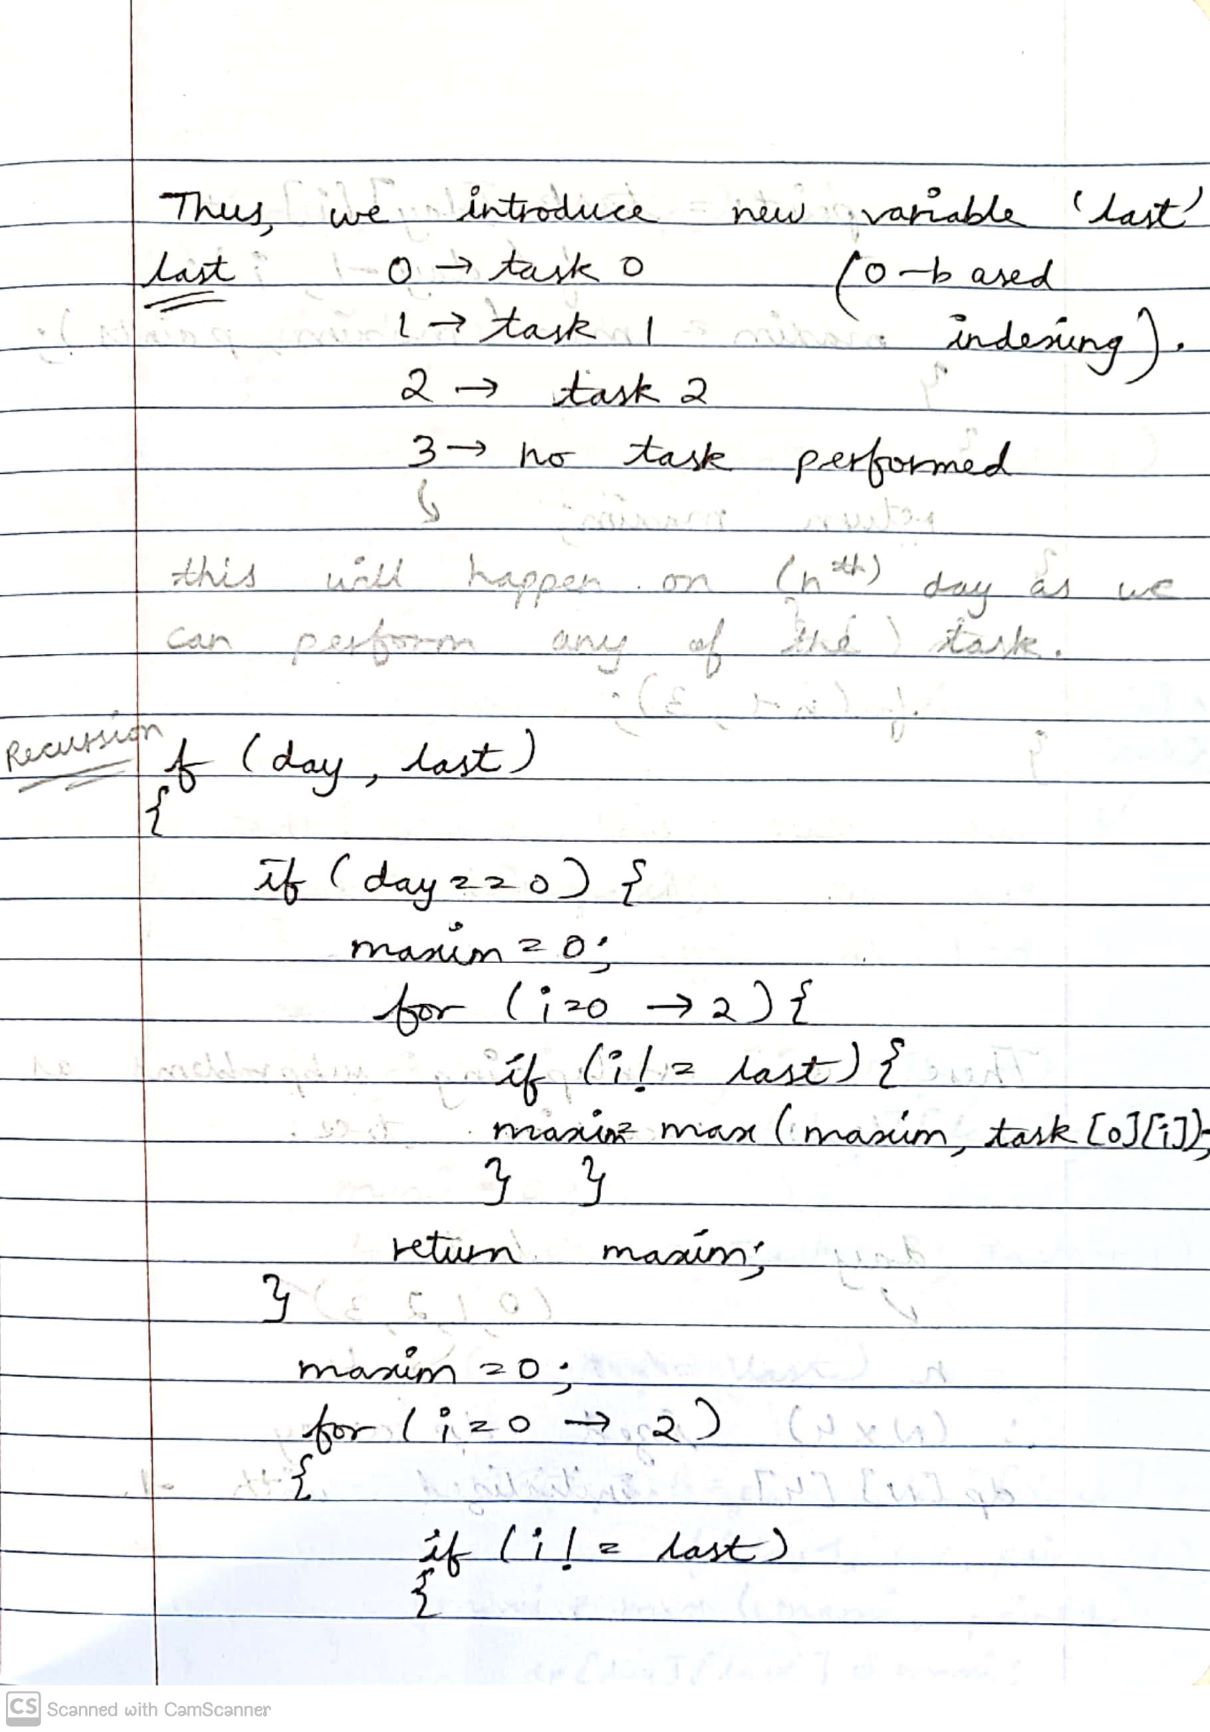 Thus, we introduce new variable 'last'
last 0 → task 0 (0-based
1 → task 1 indexing).
2 → task 2
3 → no task performed
↳
this will happen on (nth) day as we
can perform any of the task.
Recurssion f (day, last)
{
if (day == 0) {
maxim = 0;
for (i=0 → 2) {
if (i != last) {
maxim= max (maxim, task [0][i]);
} }
return maxim;
}
maxim = 0;
for (i=0 → 2)
{
if (i != last)
{
CS Scanned with CamScanner